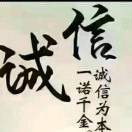 诚信
诚信为本
一诺千金